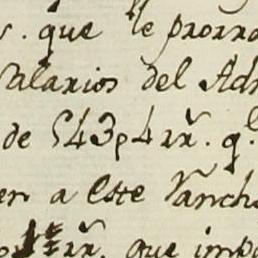 . que le prorro
Salarios del Ad
de 543p4 rr̃. q.
en a Este Ranch
rr̃. que imp